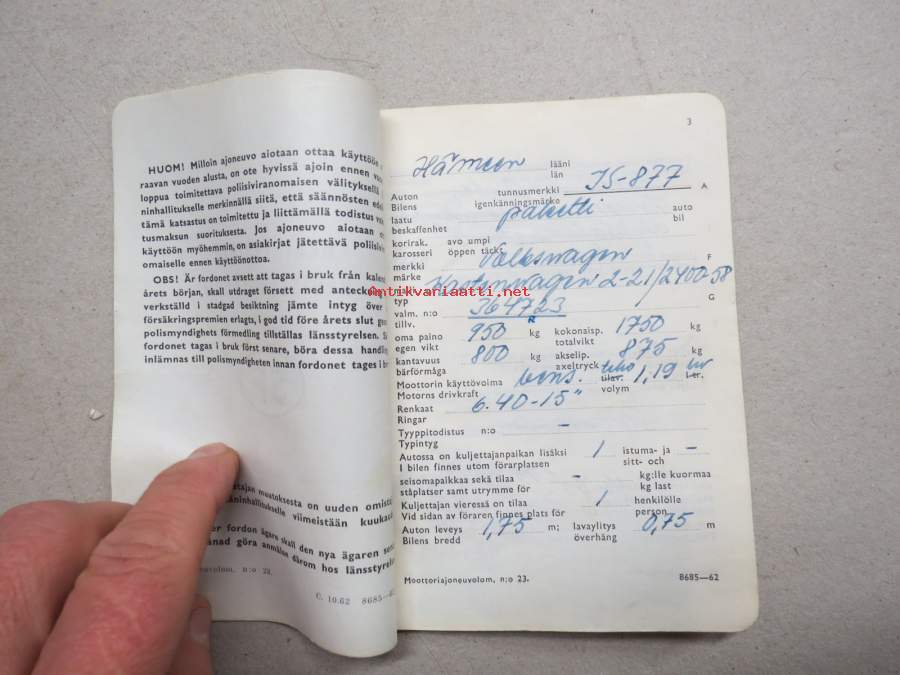 HUOM! Milloin ajoneuvo aiotaan ottaa käyttöön
raavan vuoden alusta, on ote hyvissä ajoin ennen
loppua toimitettava poliisiviranomaisen välityksellä
ninhallitukselle merkinnällä siitä, että säännösten
tämä katsastus on toimitettu ja liittämällä todistus
tusmaksun suorituksesta. Jos ajoneuvo aiotaan
käyttöön myöhemmin, on asiakirjat jätettävä
omaiselle ennen käyttöönottoa.
OBS! Är fordonet avsett att tagas i bruk från
årets början, skall utdraget försett med
verkställd i stadgad besiktning jämte intyg över
försäkringspremien erlagts, i god tid före årets slut
polismyndighets förmedling tillställas länsstyrelsen.
fordonet tages i bruk först senare, böra dessa
inlämnas till polismyndigheten innan fordonet tages i
muutoksesta on uuden
viimeistään
fordon ägare skall den nya ägaren
göra anmälan därom hos
n:o 23.
C. 10.62 8685—
3
Hämeen lääni
län
Auton tunnusmerkki IS-877 A
Bilens igenkänningsmärke
laatu paketti auto
beskaffenhet bil
korirak. avo umpi
karosseri öppen täckt
merkki Volkswagen F
märke
Kastenwagen 2-21/2400-58
Antikvariaatti.net
typ G
valm. n:o 364723
tillv.
oma paino 950 kg kokonaisp. 1750 kg
egen vikt totalvikt
kantavuus 800 kg akselip. 875 kg
bärförmåga axeltryck
Moottorin käyttövoima bens. teho 1,19
Motorns drivkraft volym
Renkaat 6.40-15"
Ringar
Tyyppitodistus n:o –
Typintyg
Autossa on kuljettajanpaikan lisäksi 1 istuma- ja –
I bilen finnes utom förarplatsen sitt- och
seisomapaikkaa sekä tilaa – kg:lle kuormaa
ståplatser samt utrymme för kg last
Kuljettajan vieressä on tilaa 1 henkilölle
Vid sidan av föraren finnes plats för person
Auton leveys 1,75 m; lavaylitys 0,75 m
Bilens bredd överhäng
Moottoriajoneuvolom, n:o 23. 8685—62